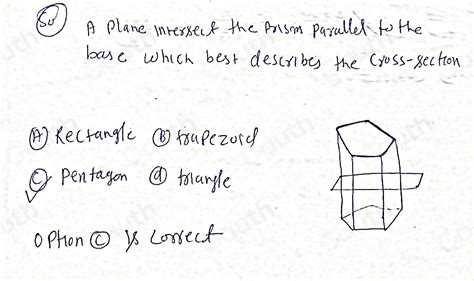 Sol
A Plane intersect the Prism Parallel to the
base which best describes the Cross-section
(A) Rectangle (B) trapezoid
(C) Pentagon (d) triangle
Option (C) is correct